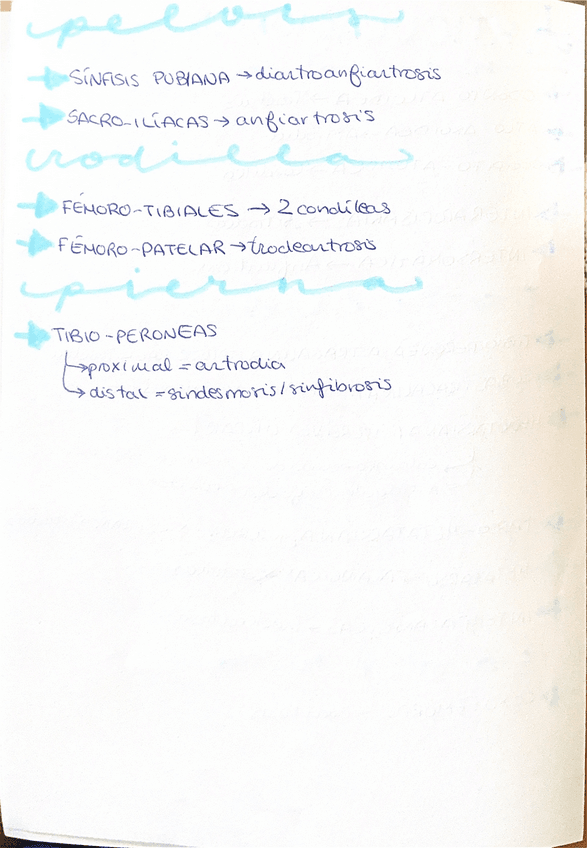 pelvis
SÍNFISIS PUBIANA → diartroanfiartrosis
SACRO-ILÍACAS → anfiartrosis
rodilla
FÉMORO-TIBIALES → 2 condíleas
FÉMORO-PATELAR → trocleartrosis
pierna
TIBIO-PERONEAS
↳ proximal = artrodia
↳ distal = sindesmosis/sinfibrosis